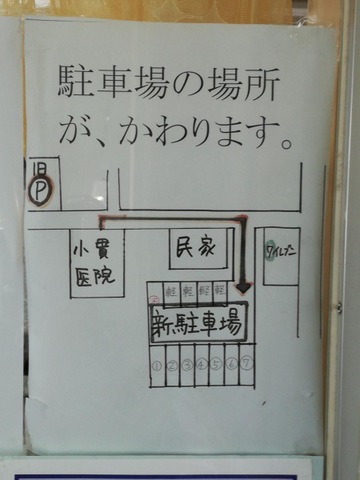 駐車場の場所
が、かわります。
旧
P
小貫
医院
民家
軽 軽 軽 軽
新駐車場
① ② ③ ④ ⑤ ⑥ ⑦